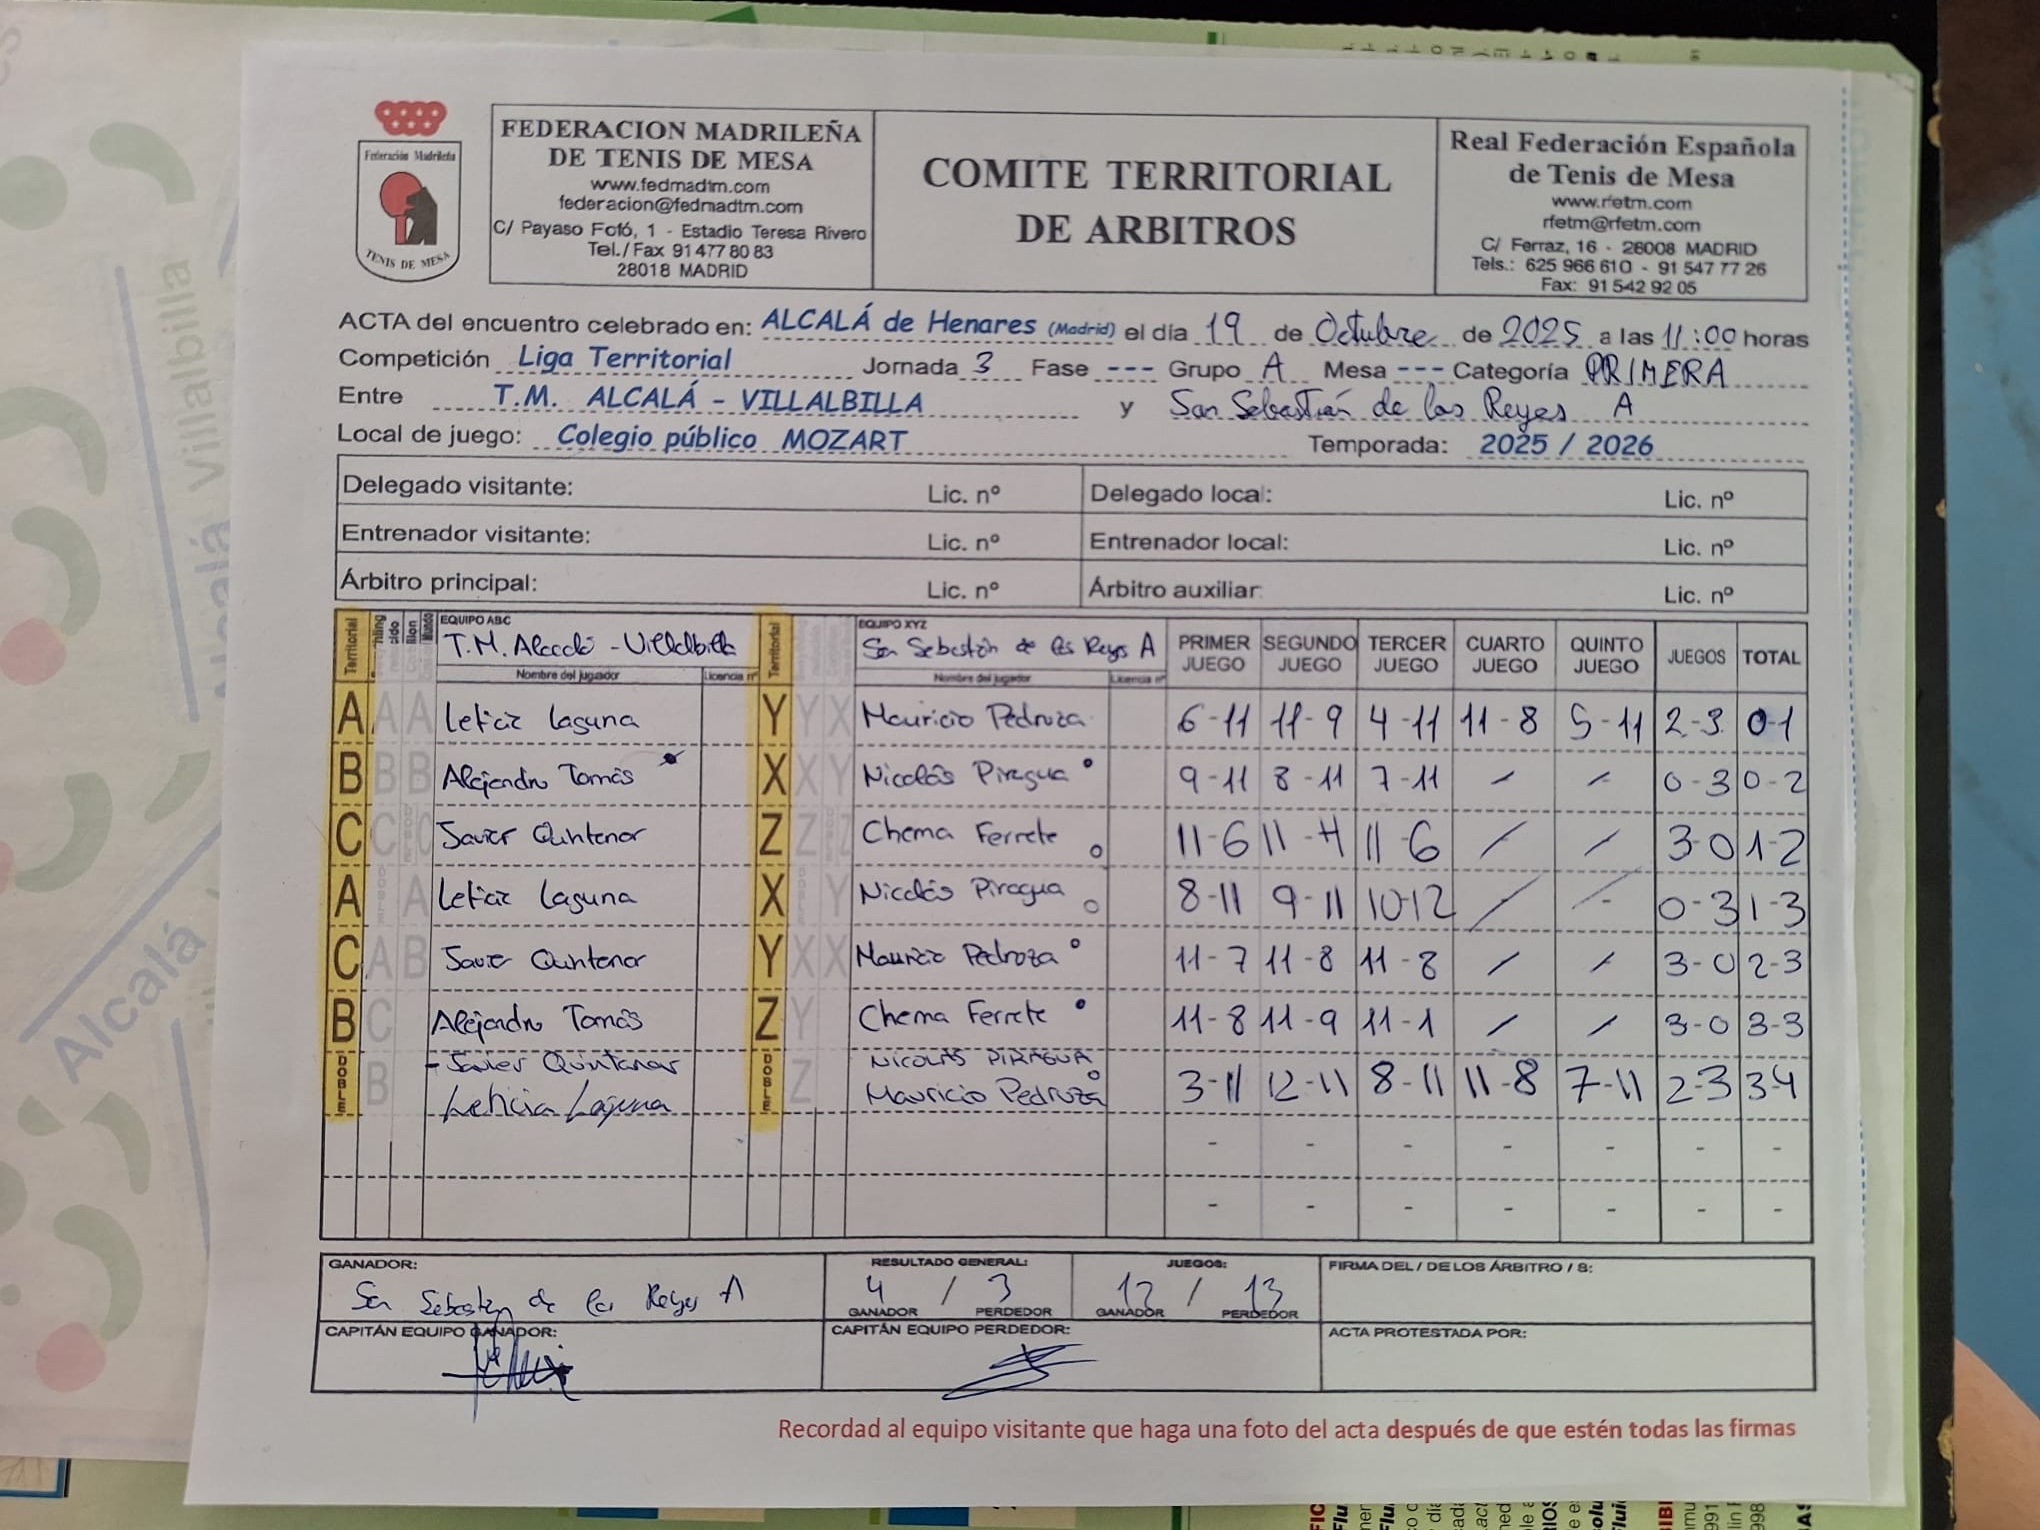 Federación Madrileña
TENIS DE MESA
FEDERACION MADRILEÑA
DE TENIS DE MESA
www.fedmadtm.com
federacion@fedmadtm.com
C/ Payaso Fofó, 1 - Estadio Teresa Rivero
Tel./Fax 91 477 80 83
28018 MADRID
COMITE TERRITORIAL
DE ARBITROS
Real Federación Española
de Tenis de Mesa
www.rfetm.com
rfetm@rfetm.com
C/ Ferraz, 16 - 28008 MADRID
Tels.: 625 966 610 - 91 547 77 26
Fax: 91 542 92 05
ACTA del encuentro celebrado en: ALCALÁ de Henares (Madrid) el día 19 de Octubre de 2025 a las 11:00 horas
Competición Liga Territorial Jornada 3 Fase --- Grupo A Mesa --- Categoría PRIMERA
Entre T.M. ALCALÁ - VILLALBILLA y San Sebastián de los Reyes A
Local de juego: Colegio público MOZART Temporada: 2025 / 2026
Delegado visitante: Lic. nº Delegado local: Lic. nº
Entrenador visitante: Lic. nº Entrenador local: Lic. nº
Árbitro principal: Lic. nº Árbitro auxiliar: Lic. nº
Territorial EQUIPO ABC T.M. Alcalá - Villalbilla Territorial EQUIPO XYZ San Sebastián de los Reyes A PRIMER JUEGO SEGUNDO JUEGO TERCER JUEGO CUARTO JUEGO QUINTO JUEGO JUEGOS TOTAL
Nombre del jugador Licencia nº Nombre del jugador Licencia nº
A A A Leticia Laguna Y Y X Mauricio Pedroza 6-11 11-9 4-11 11-8 5-11 2-3 0-1
B B B Alejandro Tomás X X Y Nicolás Piragua 9-11 8-11 7-11 / / 0-3 0-2
C C C Javier Quintanar Z Z Z Chema Ferrete 11-6 11-4 11-6 / / 3-0 1-2
A A Leticia Laguna X Y Nicolás Piragua 8-11 9-11 10-12 / / 0-3 1-3
C A B Javier Quintanar Y X X Mauricio Pedroza 11-7 11-8 11-8 / / 3-0 2-3
B C Alejandro Tomás Z Y Chema Ferrete 11-8 11-9 11-1 / / 3-0 3-3
DOBLE B - Javier Quintanar DOBLE Z NICOLÁS PIRAGUA
Leticia Laguna Mauricio Pedroza 3-11 12-11 8-11 11-8 7-11 2-3 3-4
- - - - - - -
- - - - - - -
GANADOR: San Sebastián de los Reyes A
RESULTADO GENERAL: 4 / 3
GANADOR PERDEDOR
JUEGOS: 12 / 13
GANADOR PERDEDOR
FIRMA DEL / DE LOS ÁRBITRO / S:
CAPITÁN EQUIPO GANADOR: CAPITÁN EQUIPO PERDEDOR: ACTA PROTESTADA POR:
Recordad al equipo visitante que haga una foto del acta después de que estén todas las firmas
Alcalá Villalbilla
Alcalá